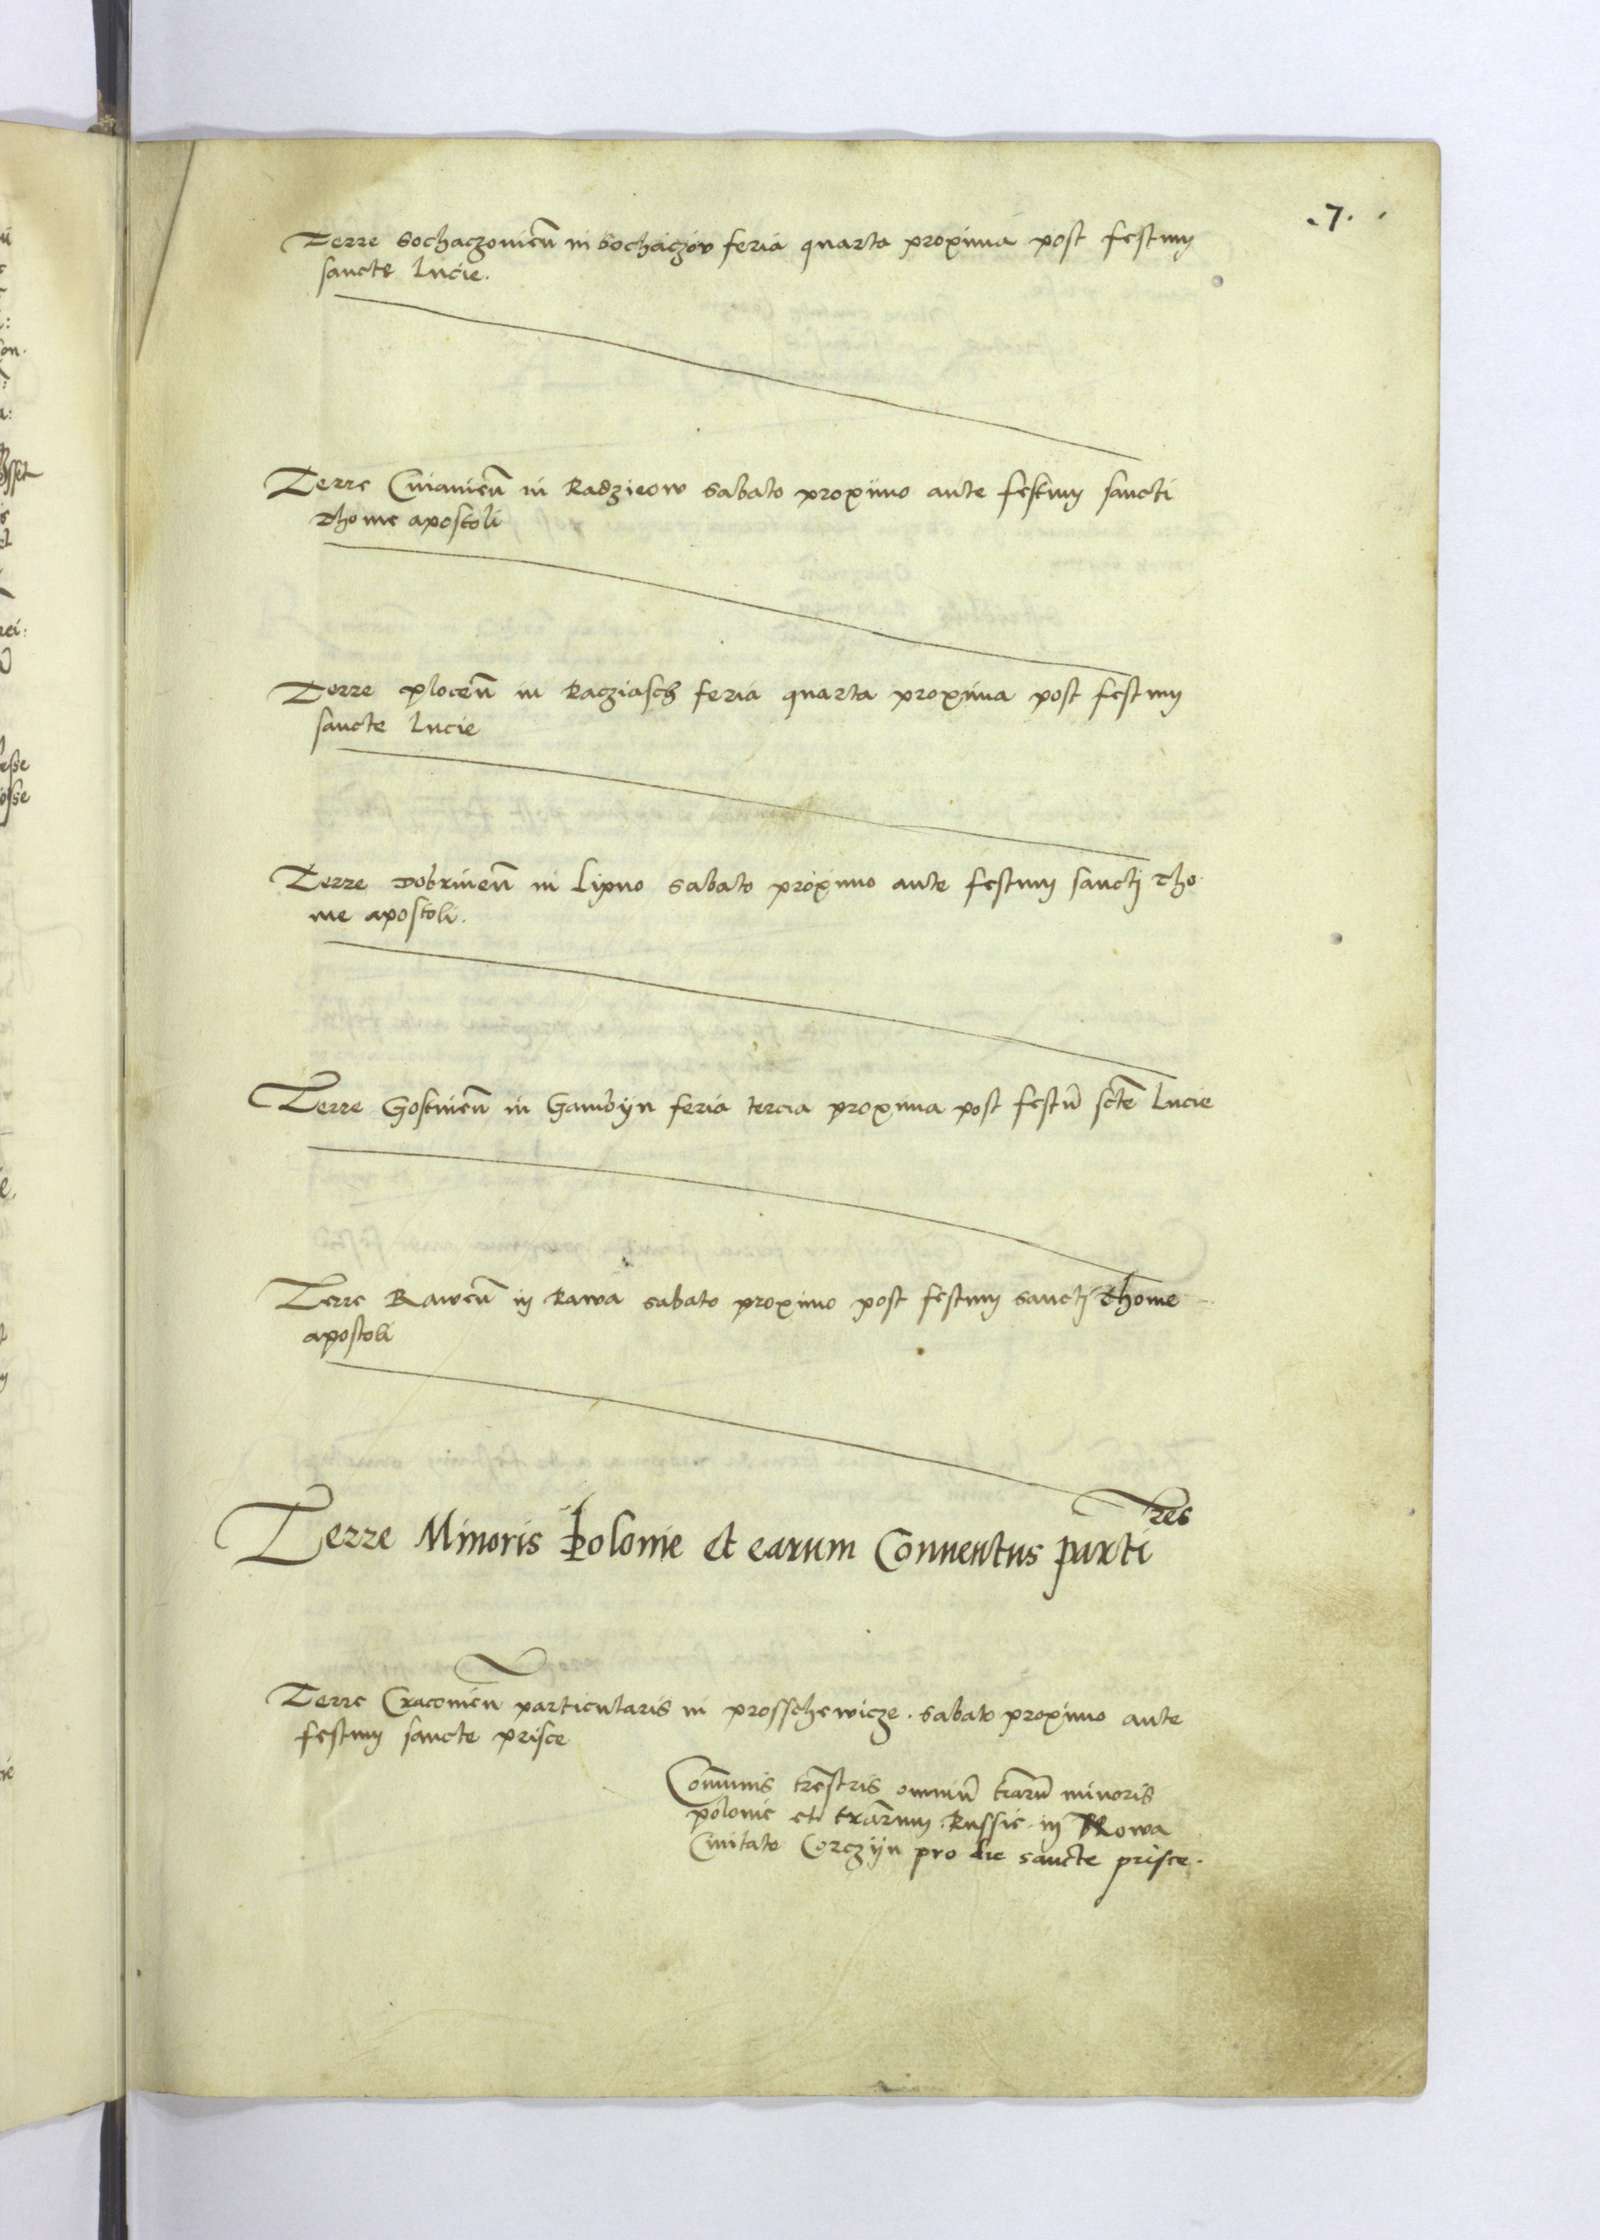 .7.
Terre Sochaczovien̄ in Sochaczov feria quarta proxima post festum
sancte Lucie.
Terre Cuiavien̄ in Radzieow Sabato proximo ante festum sancti
Thome apostoli
Terre plocen̄ in Racziasch feria quarta proxima post festum
sancte Lucie
Terre Dobrinen̄ in Lipno Sabato proximo ante festum sancti Tho
me apostoli.
Terre Gostinen̄ in Gambijn feria tercia proxima post festū scte̅ Lucie
Terre Rawen̄ in Rawa sabato proximo post festum sancti Thome
apostoli
Terre Minoris Polonie et earum Conuentus parti res
Terre Cracovien̄ particularis in prosschewicze . Sabato proximo ante
festum sancte prisce
Com̄unis tr̄estris omniū tr̄arū minoris
polonie et tr̄arum Russie in Nowa
Ciuitate Corczijn pro die sancte prisce.